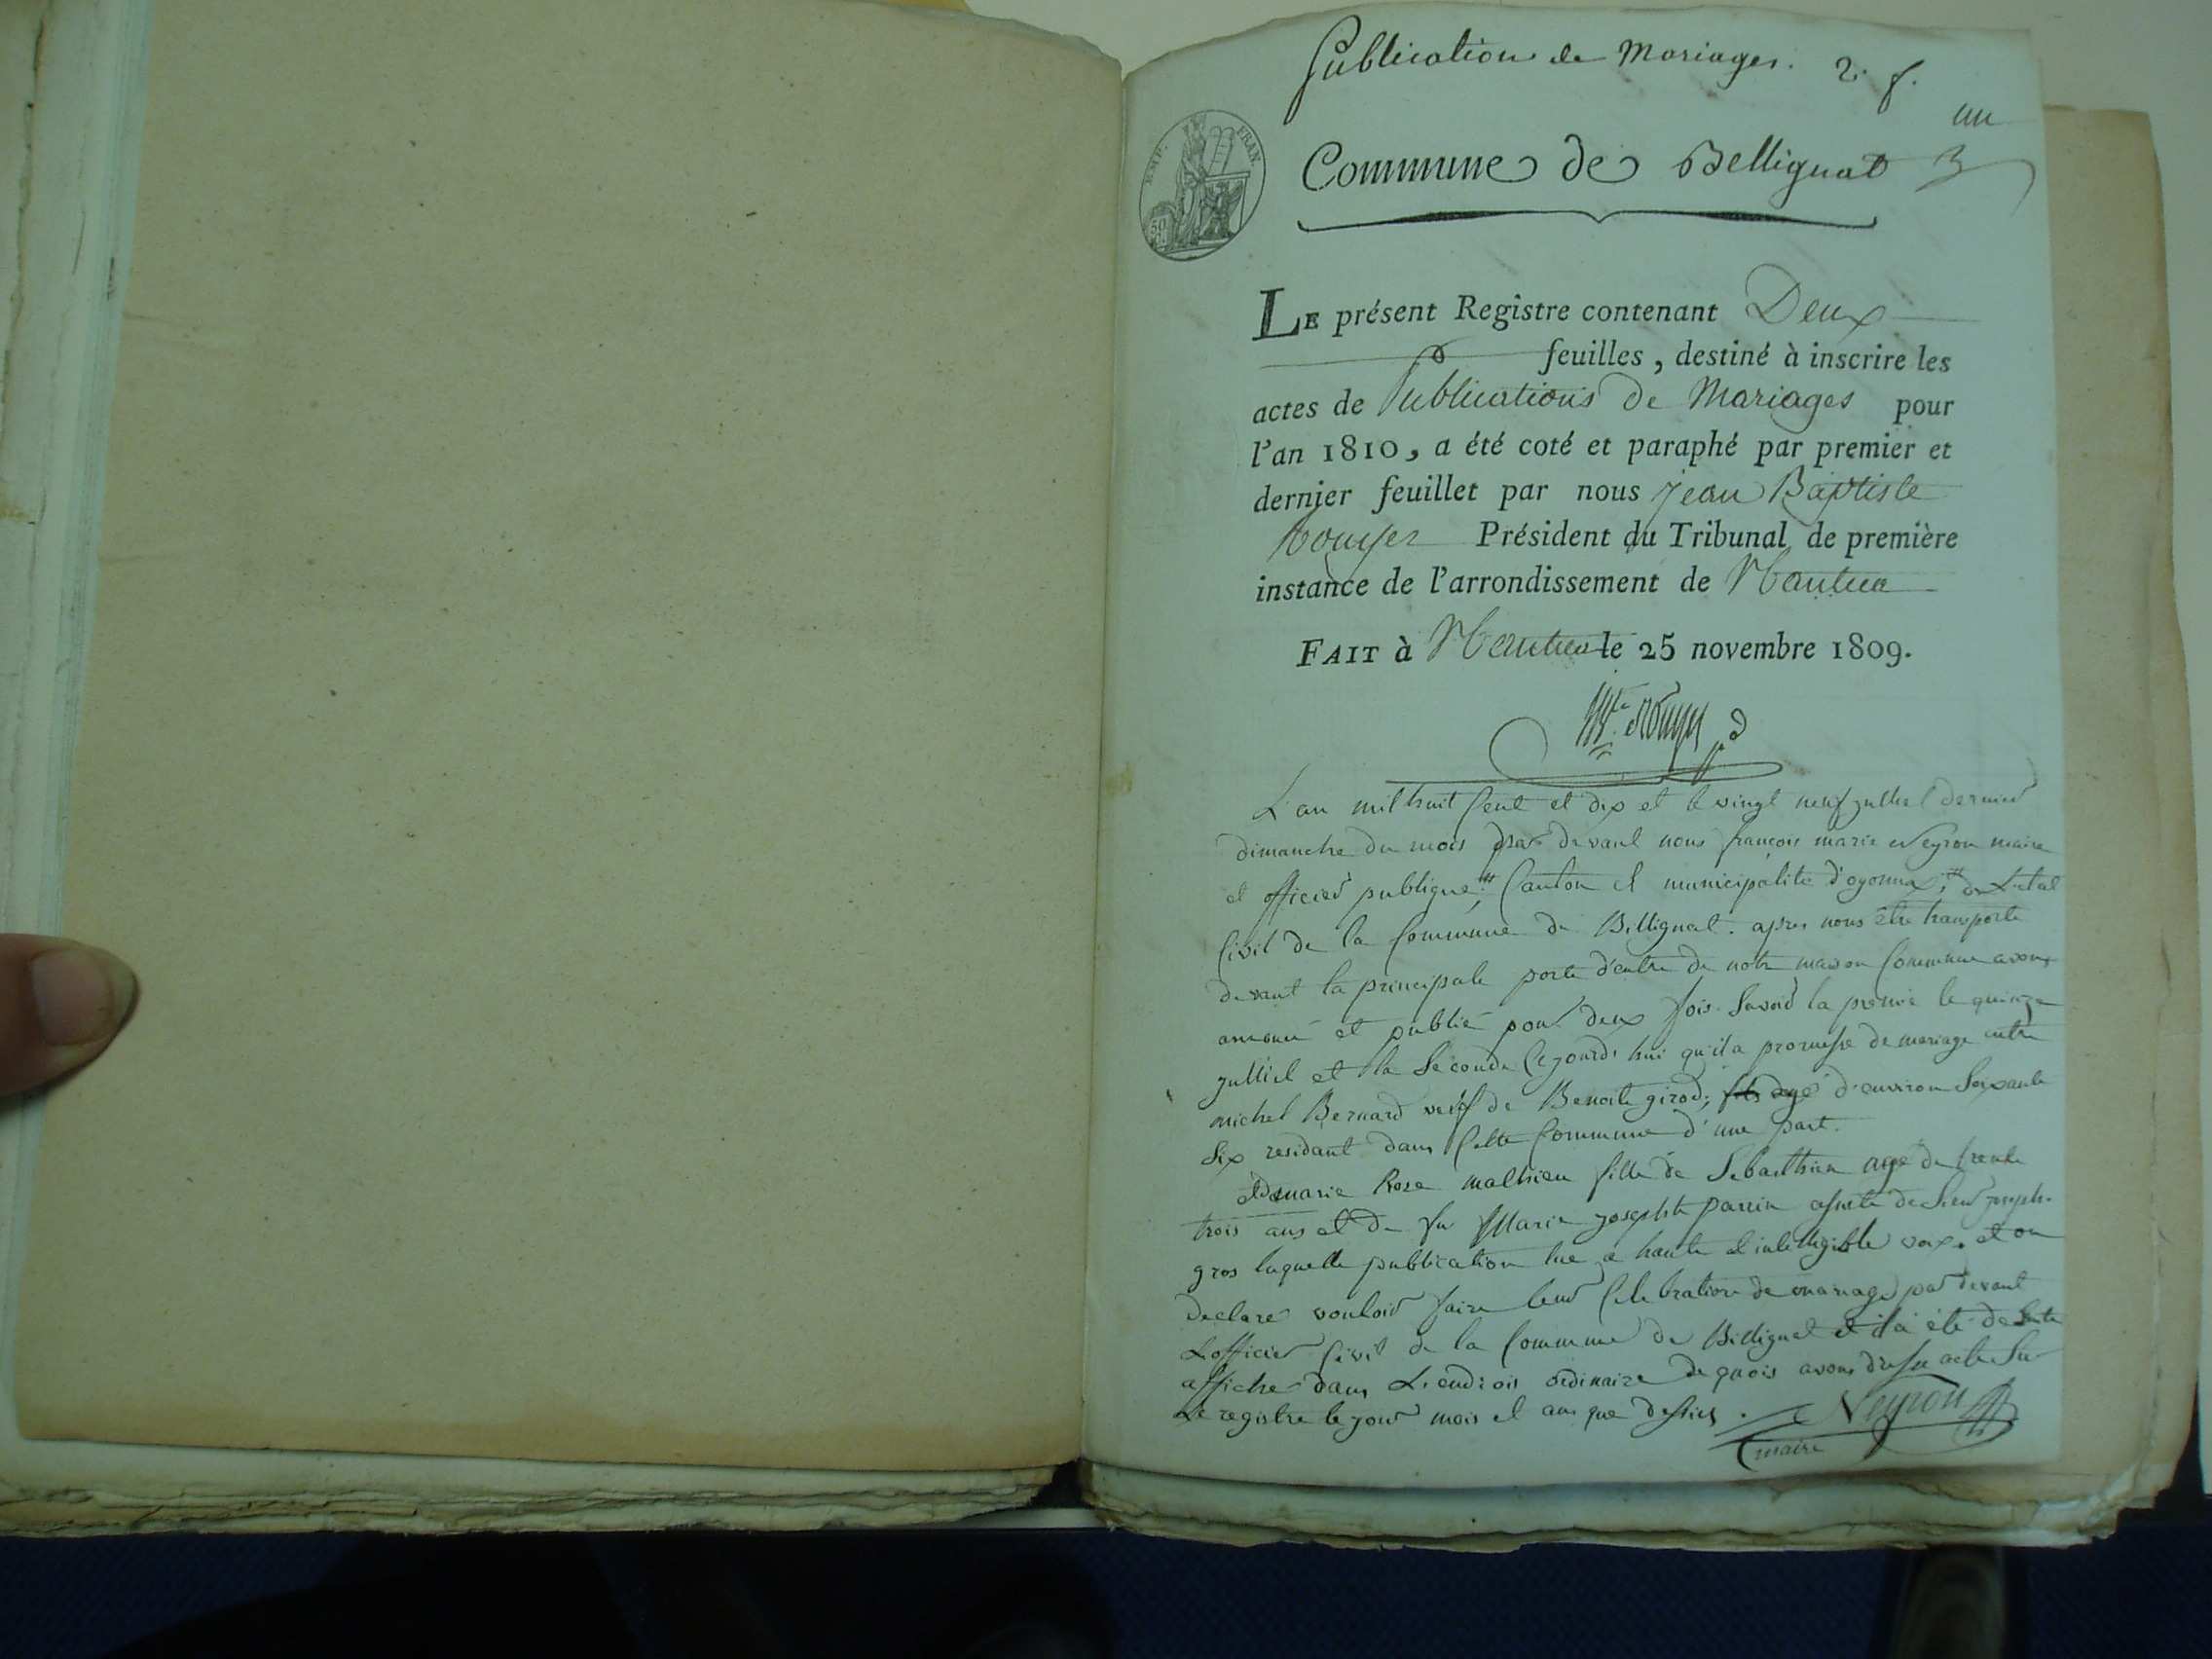 Publication de Mariages. 2. f.
un
EMP. FRAN.
50
Commune de Bellignat
LE présent Registre contenant Deux
feuilles, destiné à inscrire les
actes de Publications de Mariages pour
l'an 1810, a été coté et paraphé par premier et
dernier feuillet par nous Jean Baptiste
Président du Tribunal de première
instance de l'arrondissement de Nantua
FAIT à Nantua le 25 novembre 1809.
L'an mil huit Cent et dix et le vingt neuf julliel dernier
dimanche du mois par devant nous françois marie Neyron maire
et officier publique, Canton et municipalite d'oyonnax, de L'etat
Civil de la Commune de Bellignat. apres nous être transporté
devant la principale porte d'entre de notre maison Commune avons
annoncé et publié pour deux fois. Savoir la premie le quinze
julliel et la Seconde Cejourd'hui qu'il a promesse de mariage entre
michel Bernard veuf de Benoite girod, agé d'environ Soixante
Six residant dans Cette Commune d'une part.
et marie Rose mathieu fille de Sebasthien agé de trente
trois ans et de fu Marie josephte parrin de Sieur joseph
gros laquelle publication lue a haute et intelligible voix. et on
declare vouloir faire leur Celebration de mariage par devant
L'officier Civil de la Commune de Bellignat et il a été de Suite
affiche dans L'endrois ordinaire de quois avons dresse acte Sur
Le registre le jour mois et ans que dessus. Neyron
maire